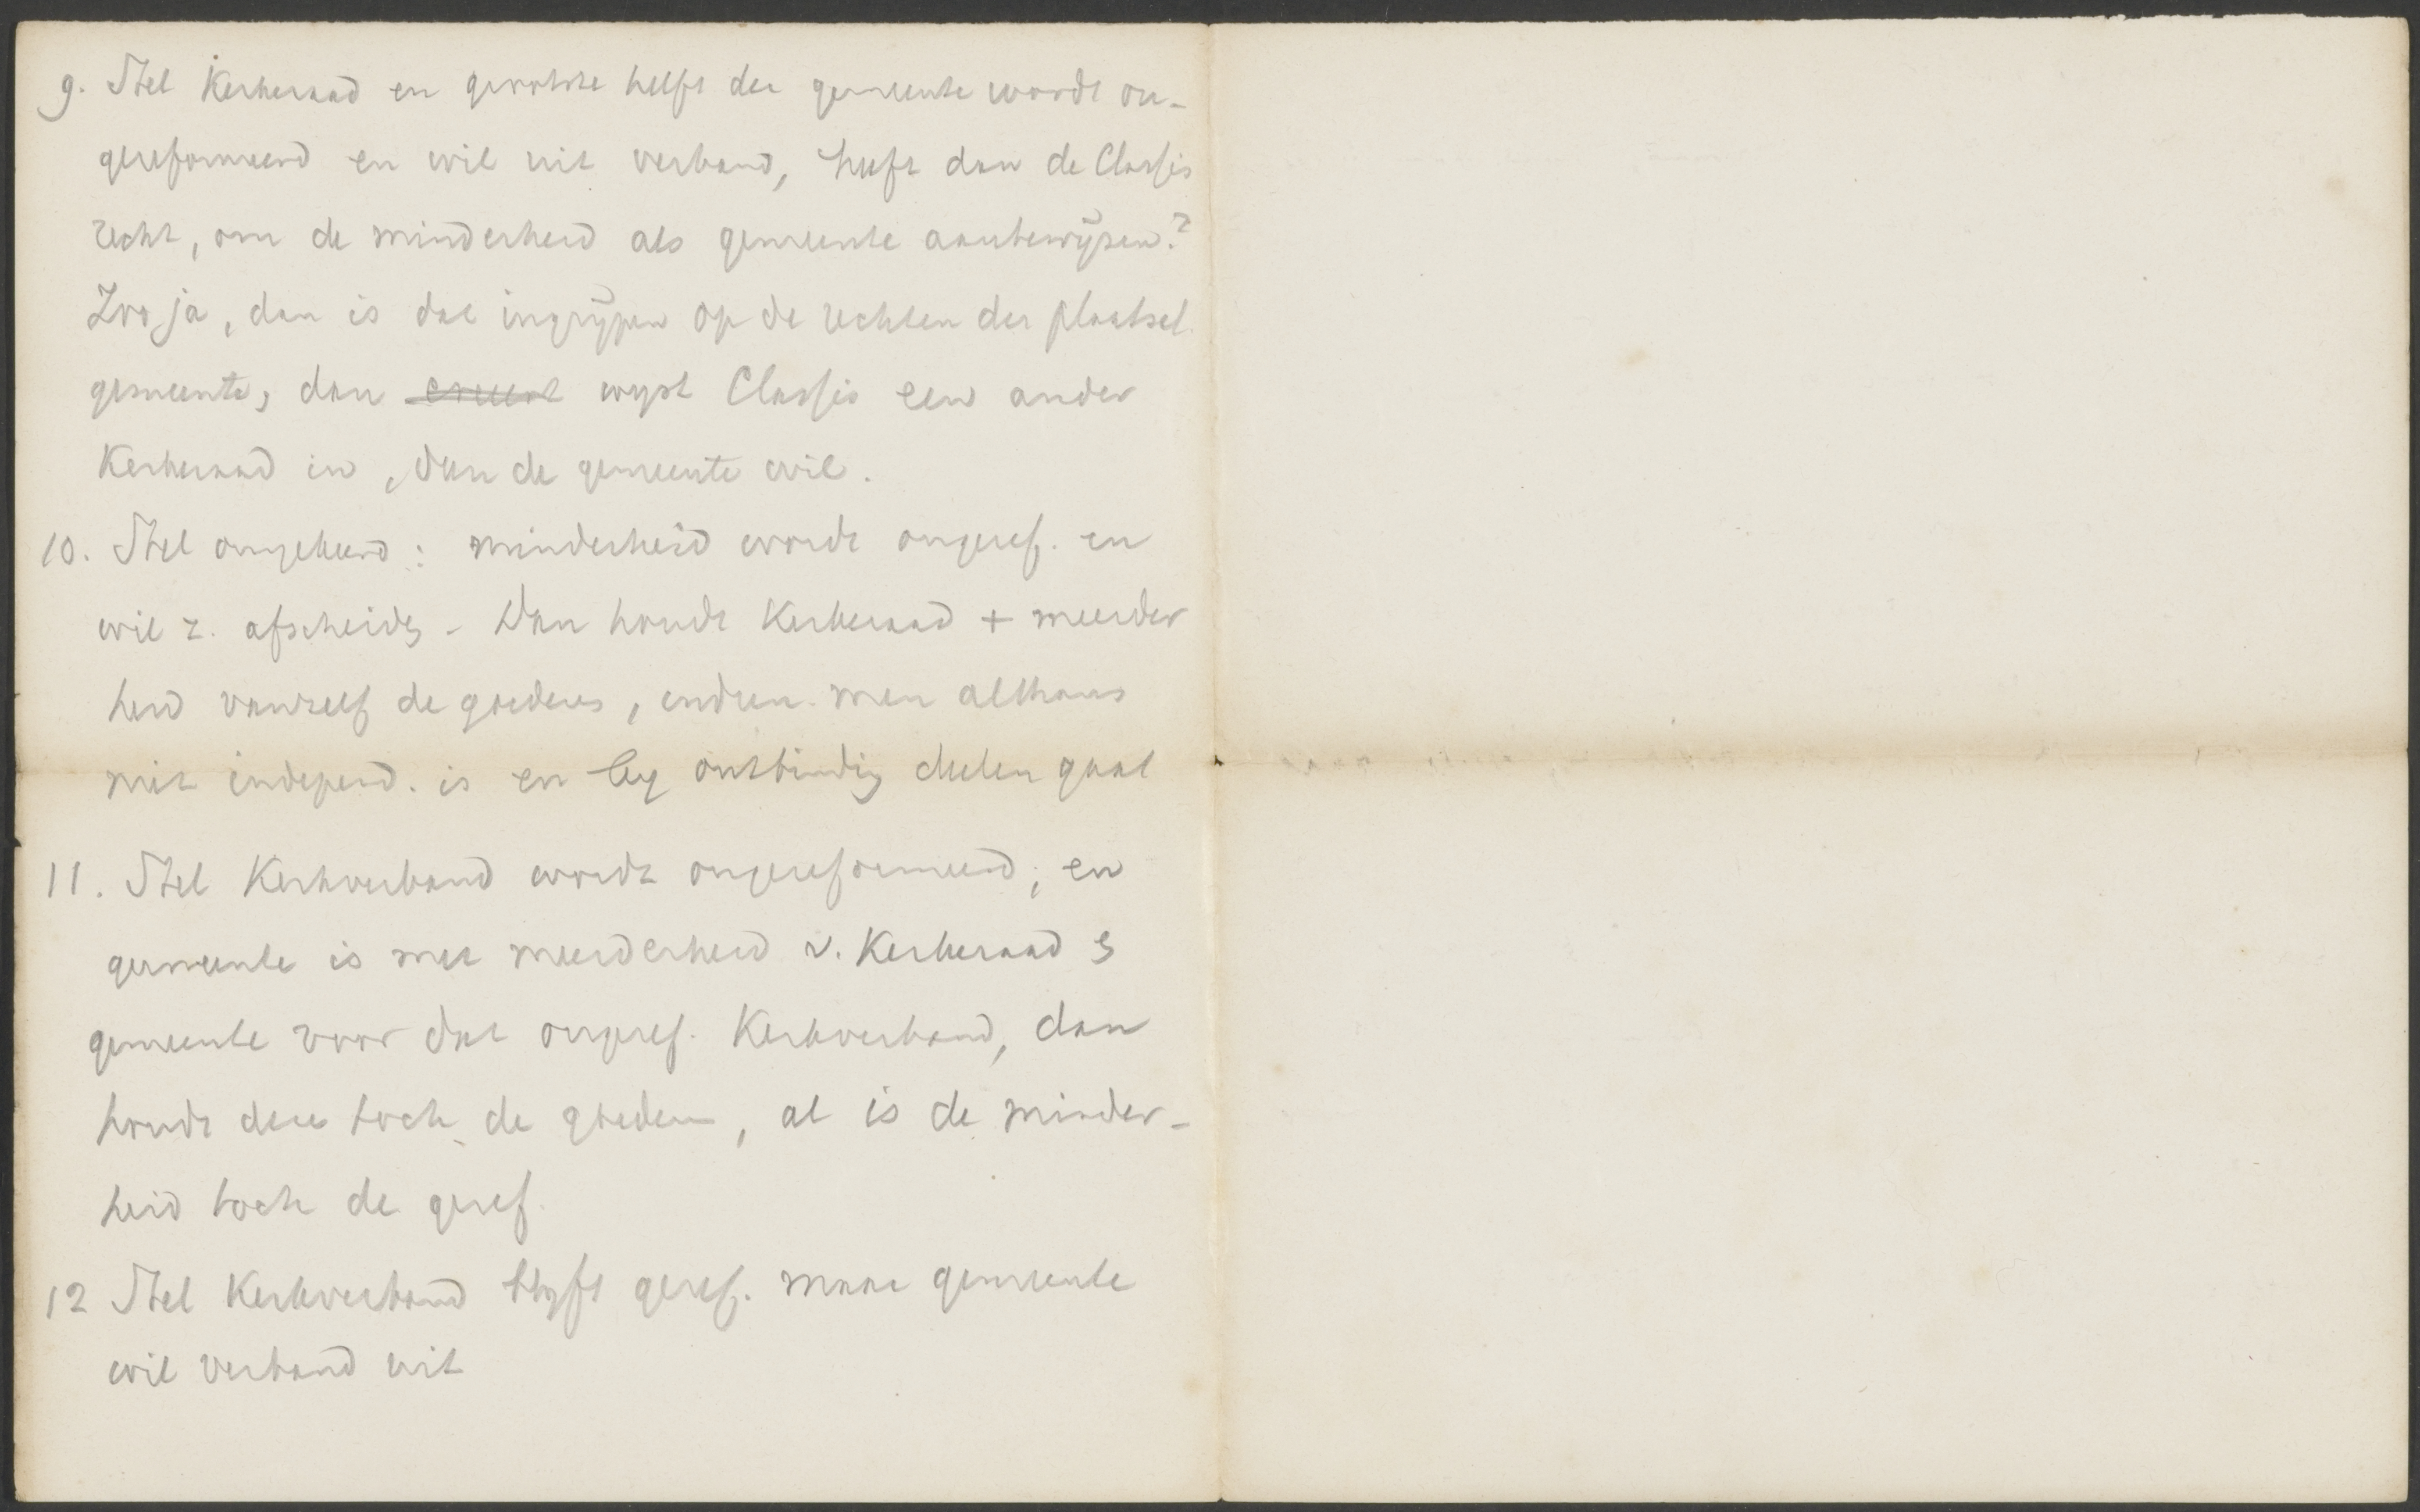 9. Stel Kerkeraad en grootste helft der gemeente wordt on-
gereformeerd en wil uit verband, heeft dan de Classis
recht, om de minderheid als gemeente aantewijzen?
Zoo ja, dan is dat ingrijpen op de rechten der plaatsel.
gemeente, dan wijst Classis een ander
Kerkeraad in, dan de gemeente wil.
10. Stel omgekeerd: minderheid wordt ongeref. en
wil z. afscheidg - Dan houdt Kerkeraad + meerder
heid vanzelf de goederen, indien men althans
niet independ. is en by ontbindig deelen gaat
11. Stel Kerkverband wordt ongereformeerd; en
gemeente is met meerderheid v. Kerkeraad &
gemeente voor dat ongeref. Kerkverband, dan
houdt deze toch de goederen, al is de minder-
heid toch de geref.
12 Stel Kerkverband blyft geref. maar gemeente
wil verband uit